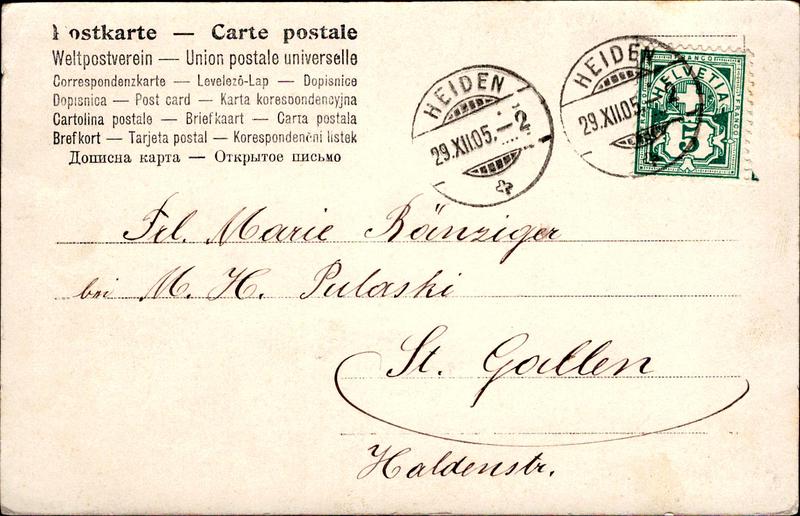 Postkarte — Carte postale
Weltpostverein — Union postale universelle
Correspondenzkarte — Levelező-Lap — Dopisnice
Dopisnica — Post card — Karta korespondencyjna
Cartolina postale — Briefkaart — Carta postala
Brefkort — Tarjeta postal — Korespondenčni listek
Дописна карта — Открытое письмо
HEIDEN
29.XII.05.-2
HEIDEN
29.XII.05.-2
FRANCO
HELVETIA
5
Frl. Marie Ränziger
bei M. H. Pulaski
St. Gallen
Haldenstr.